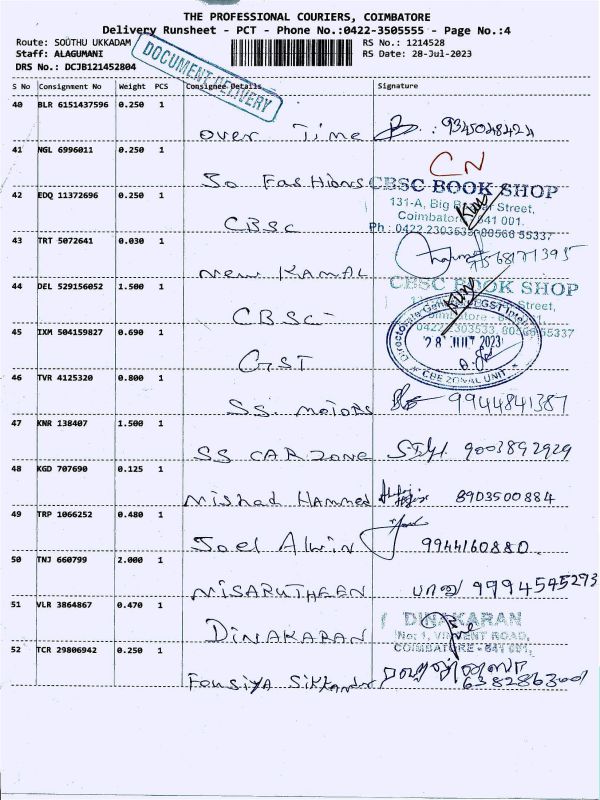 THE PROFESSIONAL COURIERS, COIMBATORE
Delivery Runsheet - PCT - Phone No.:0422-3505555 - Page No.:4
Route: SOUTHU UKKADAM RS No.: 1214528
Staff: ALAGUMANI RS Date: 28-Jul-2023
DRS No.: DCJB121452804
DOCUMENT DELIVERY
S No Consignment No Weight PCS Consignee Details Signature
40 BLR 6151437596 0.250 1
Over Time 9345048424
41 NGL 6996011 0.250 1
CN
So Fashions
CBSC BOOK SHOP
42 EDQ 11372696 0.250 1
131-A, Big Bazaar Street,
Coimbatore 641 001.
CBSC
Ph : 0422 2303533, 80566 55337
43 TRT 5072641 0.030 1
New KAMAL
44 DEL 529156052 1.500 1
CBSC BOOK SHOP
Street,
CBSC
0422 2303533, 80566 55337
45 IXM 504159827 0.690 1
28 JUL 2023
GST
CBE ZONAL UNIT
46 TVR 4125320 0.800 1
SS. MOTORS 9944841387
47 KNR 138407 1.500 1
SS CAR ZONE 9003892929
48 KGD 707690 0.125 1
Nishad Hammed 8903500884
49 TRP 1066252 0.480 1
Joel Alwin 9944160880.
50 TNJ 660799 2.000 1
NISARUTHEEN 9994545293
51 VLR 3864867 0.470 1
DINAKARAN
DINAKARAN
No: 1, VINCENT ROAD,
COIMBATORE - 641 001.
52 TCR 29806942 0.250 1
Fousiya Sikkandr